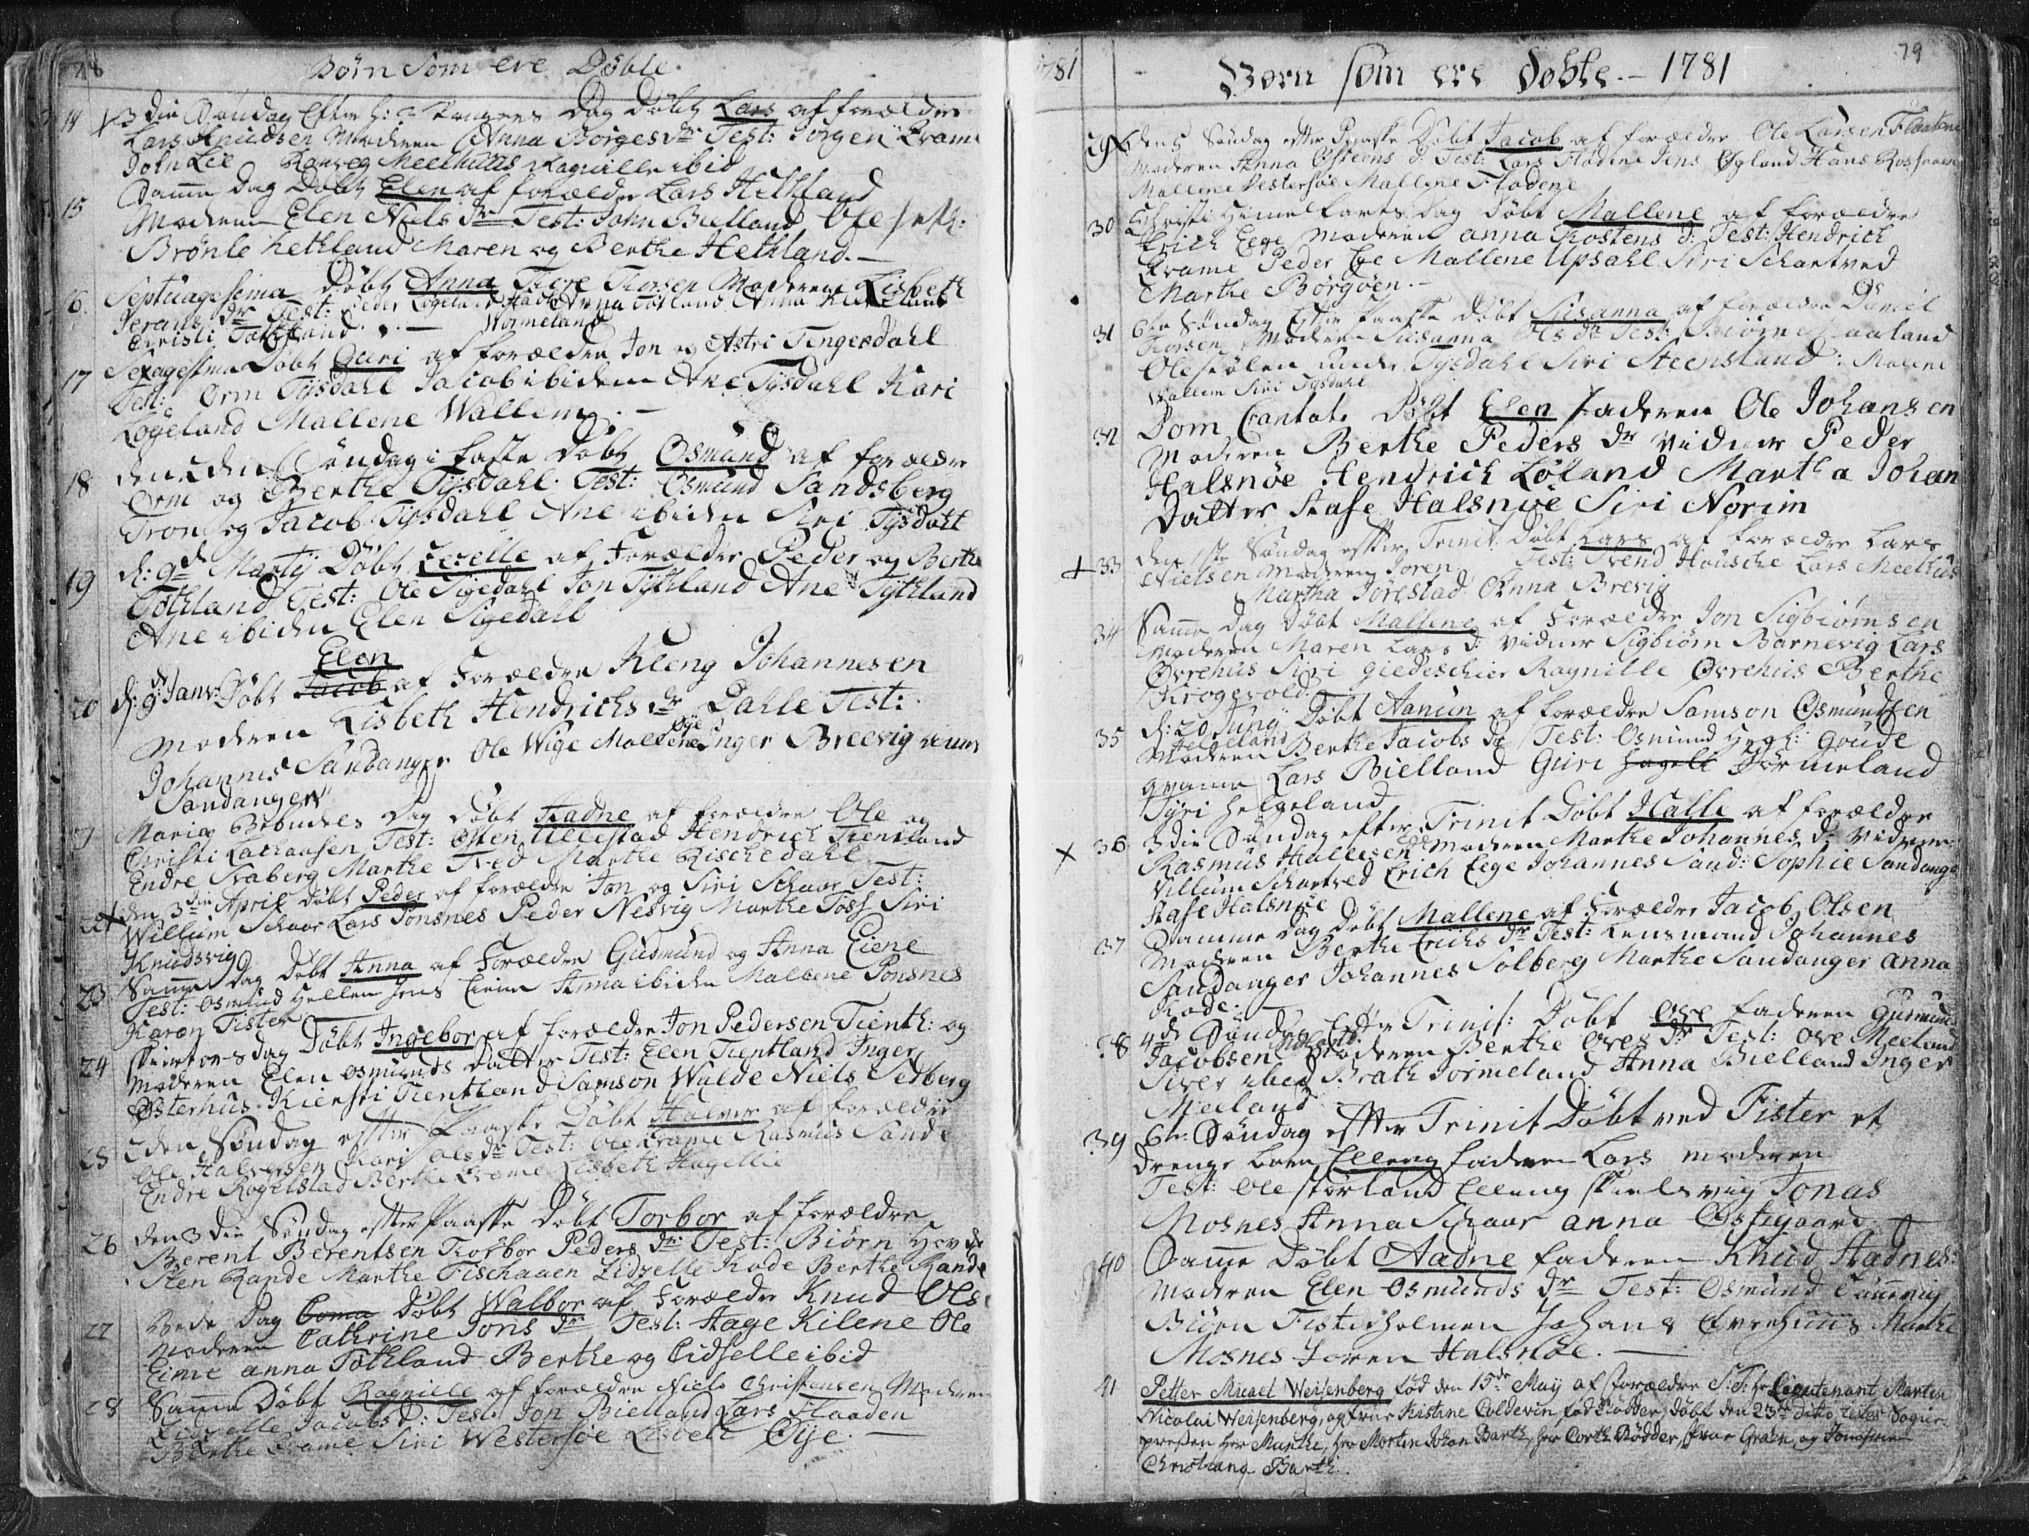 78
Børn Som ere Døbte.
14 3die Søndag Efter h: 3 Kongers Dag Døbt Lars af forældre
Lars Knudsen Moderen Anna Børges dr Test: Jørgen Krame
John Lie Ragnille ibid
15 Samme Dag Døbt Elen af forældre Lars Hetland
Moderen Elen Niels dr Test: John Bielland Ole
Hetland Maren og Berthe Hetland. —
16. Septuagesima Døbt Anna Moderen Lisbeth
dr Test: Peder Anna
Christi
17 Sexagesima Døbt Guri af forældre Jon og Astri Tengesdahl
Test: Orm Tysdahl Jacob ibidem Ane Tysdahl Kari
Løgeland Mallene Wallem. —
18 Søndag i faste Døbt Osmund af forældre
Orm og Berthe Tysdahl. Test: Osmund Sandsberg
Tron og Jacob Tysdahl Ane ibiden Siri Tysdahl
19 d: 9d Martij Døbt af Forældre Peder og Berthe
Tøtland Test: Ole Sigedahl Jon Tytland Ane Tytland
Ane ibiden Elen Sigedall
Elen
20 d: 9 Janv: Døbt Jacob af Forældre Kleng Johannesen
Moderen Lisbeth Hendrichs dr Test:
Johannes Sandanger Ole Wige Mallene Øye Inger Breevig
Sandanger
Mariæ Bebudelses Dag Døbt Aadne af forældre Ole og
Christi Test: Østen Ullestad Hendrich Tientland
Endre Marthe Marthe
den 3die April Døbt Peder af forældre Jon og Siri Schaar Test:
Willum Schaar Lars Ponsnes Peder Nesvig Marthe Foss Siri
Knudsvig
23 Samme Dag Døbt Anna af Forældre Gudmund og Anna Eiene
Test: Osmund Hellen Jens Eiene Anna ibiden Mallene Ponsnes
Karen Fister
24 Skiertorsdag Døbt Ingebor af forældre Jon Pedersen Tientl: og
Moderen Elen Osmunds Datter Test: Elen Tientland Inger
Østerhus. Kiersti Tientland Samson Walde Niels Sedberg
25 2den Søndag efter Paaske Døbt Halvor af forældre
Ole Halversen Kari Ols dr Test: Ole Krame Rasmus Sande
Endre Rogelstad Berthe Krame Lisbeth Hagellie
26 den 3die Søndag efter Paaske Døbt Torbor af forældre
Berent Berentsen Torbor Peders dr: Test: Biørn Hovde
Sten Rande Marthe Fischaaen Zidzelle Rode Berthe Rande
27 Døbt Walbor af Forældre Knud Ols
Moderen Cathrine Jons dr Test: Aage Kilene Ole
Eine anna Tøtland Berthe og Cidselle ibid
28 Samme Døbt Ragnille af forældre Niels Christensen Moderen
Zidzelle Jacobs D: Test: Jon Bielland Lars Flaaden
Berthe Krame Siri Westersøe Lisbeth Øye. —
1781
Børn som ere døbte. — 1781
79
29 den 5 Søndag efter Paaske Døbt Jacob af forældre Ole Larsen Flaatene
Moderen Anna Østens d: Test: Lars Flodene Jens Øgland Hans
Mallene Westersøe Mallene Flodene
30 Christi Himelfarts Dag Døbt Mallene af forældre
Erich Eege Moderen anna Tostens d: Test: Hendrich
Krame Peder Ee Mallene Upsahl Siri Schartved
Marthe Børgøen. —
31 6te Søndag Efter Paaske Døbt Susanna af forældre Daniel
Torsen Moderen Susanna Ols dr Test: Biørn
Ole under Tysdahl Siri Steensland:
Wallem Siri Tysdahl
32 Dom Cantate Døbt Elen Faderen Ole Johansen
Moderen Berthe Peders dr Vidner Peder
Halsnøe Hendrich Løland Martha Johan
Datter Aase Halsnøe Siri Norim
33 den 1ste Søndag efter Trinit: Døbt Lars af forældre Lars
Nielsen Moderen Joren Test: Trend Housche Lars Meelhus
Martha Jørestad Anna Brevig
34 Samme Dag Døbt Mallene af Forældre Jon Sigbiørnsen
Moderen Maren Lars d: Vidner Sigbiørn Barnevig Lars
Øvrehus Siri giedeschier Ragnille Øvrehus Berthe
Krogevold
35 d: 20 Junij Døbt Aanun af forældre Samson Osmundsen
Helgeland
Moderen Berthe Jacobs da Test: Osmund goude
qvame Lars Bielland Guri Hageli Jørmeland
Tyri Helgeland
36 3die Søndag efter Trinit Døbt Halle af forældre
Rasmus Hallesen Moderen Marthe Johannes dr Vidner:
Villum Schartved Erich Eege Johannes Sand: Sophie Sandanger
Aase Halsnøe
37 Samme Dag Døbt Mallene af Forældre Jacob Olsen
Moderen Berthe Erichs dr Test: Lensmand Johannes
Sandanger Johannes Solberg Marthe Sandanger anna
Rode. —
38 4de Søndag Efter Trinit: Døbt Ove faderen Gudmund
Jacobsen Moderen Berthe Oves dr Test: Ove Meeland
Siver ibid Brath Jørmeland Anna Bielland Inger
Meeland
39 6te Søndag efter Trinit Døbt ved Fister et
drenge barn Elleng faderen Lars moderen
Test: Ole Størland Elleng Skielsvig Jonas
Mosnes Anna Schaar anna Østigaard. —
40 Samme Døbt Aadne faderen Knud Aadnes:
Moderen Elen Osmunds dr Test: Osmund
Biørn Fisterholmen Johans Øvrehuus Marthe
Mosnes Joren Halsnøe. —
41 Petter Micael Weisenberg fød den 15de Maij af forældre S:T: Hr Lieutenant Martin
Nicolai Weisenberg, og frue Kistine Coldevin fød Rødder, døbt den 23de ditto, testes Sogne-
præsten Her Munthe, Her Morten Johan Barth, Her Corth Rødder, frue Gran, og Jomfrue
Christiana Barth.